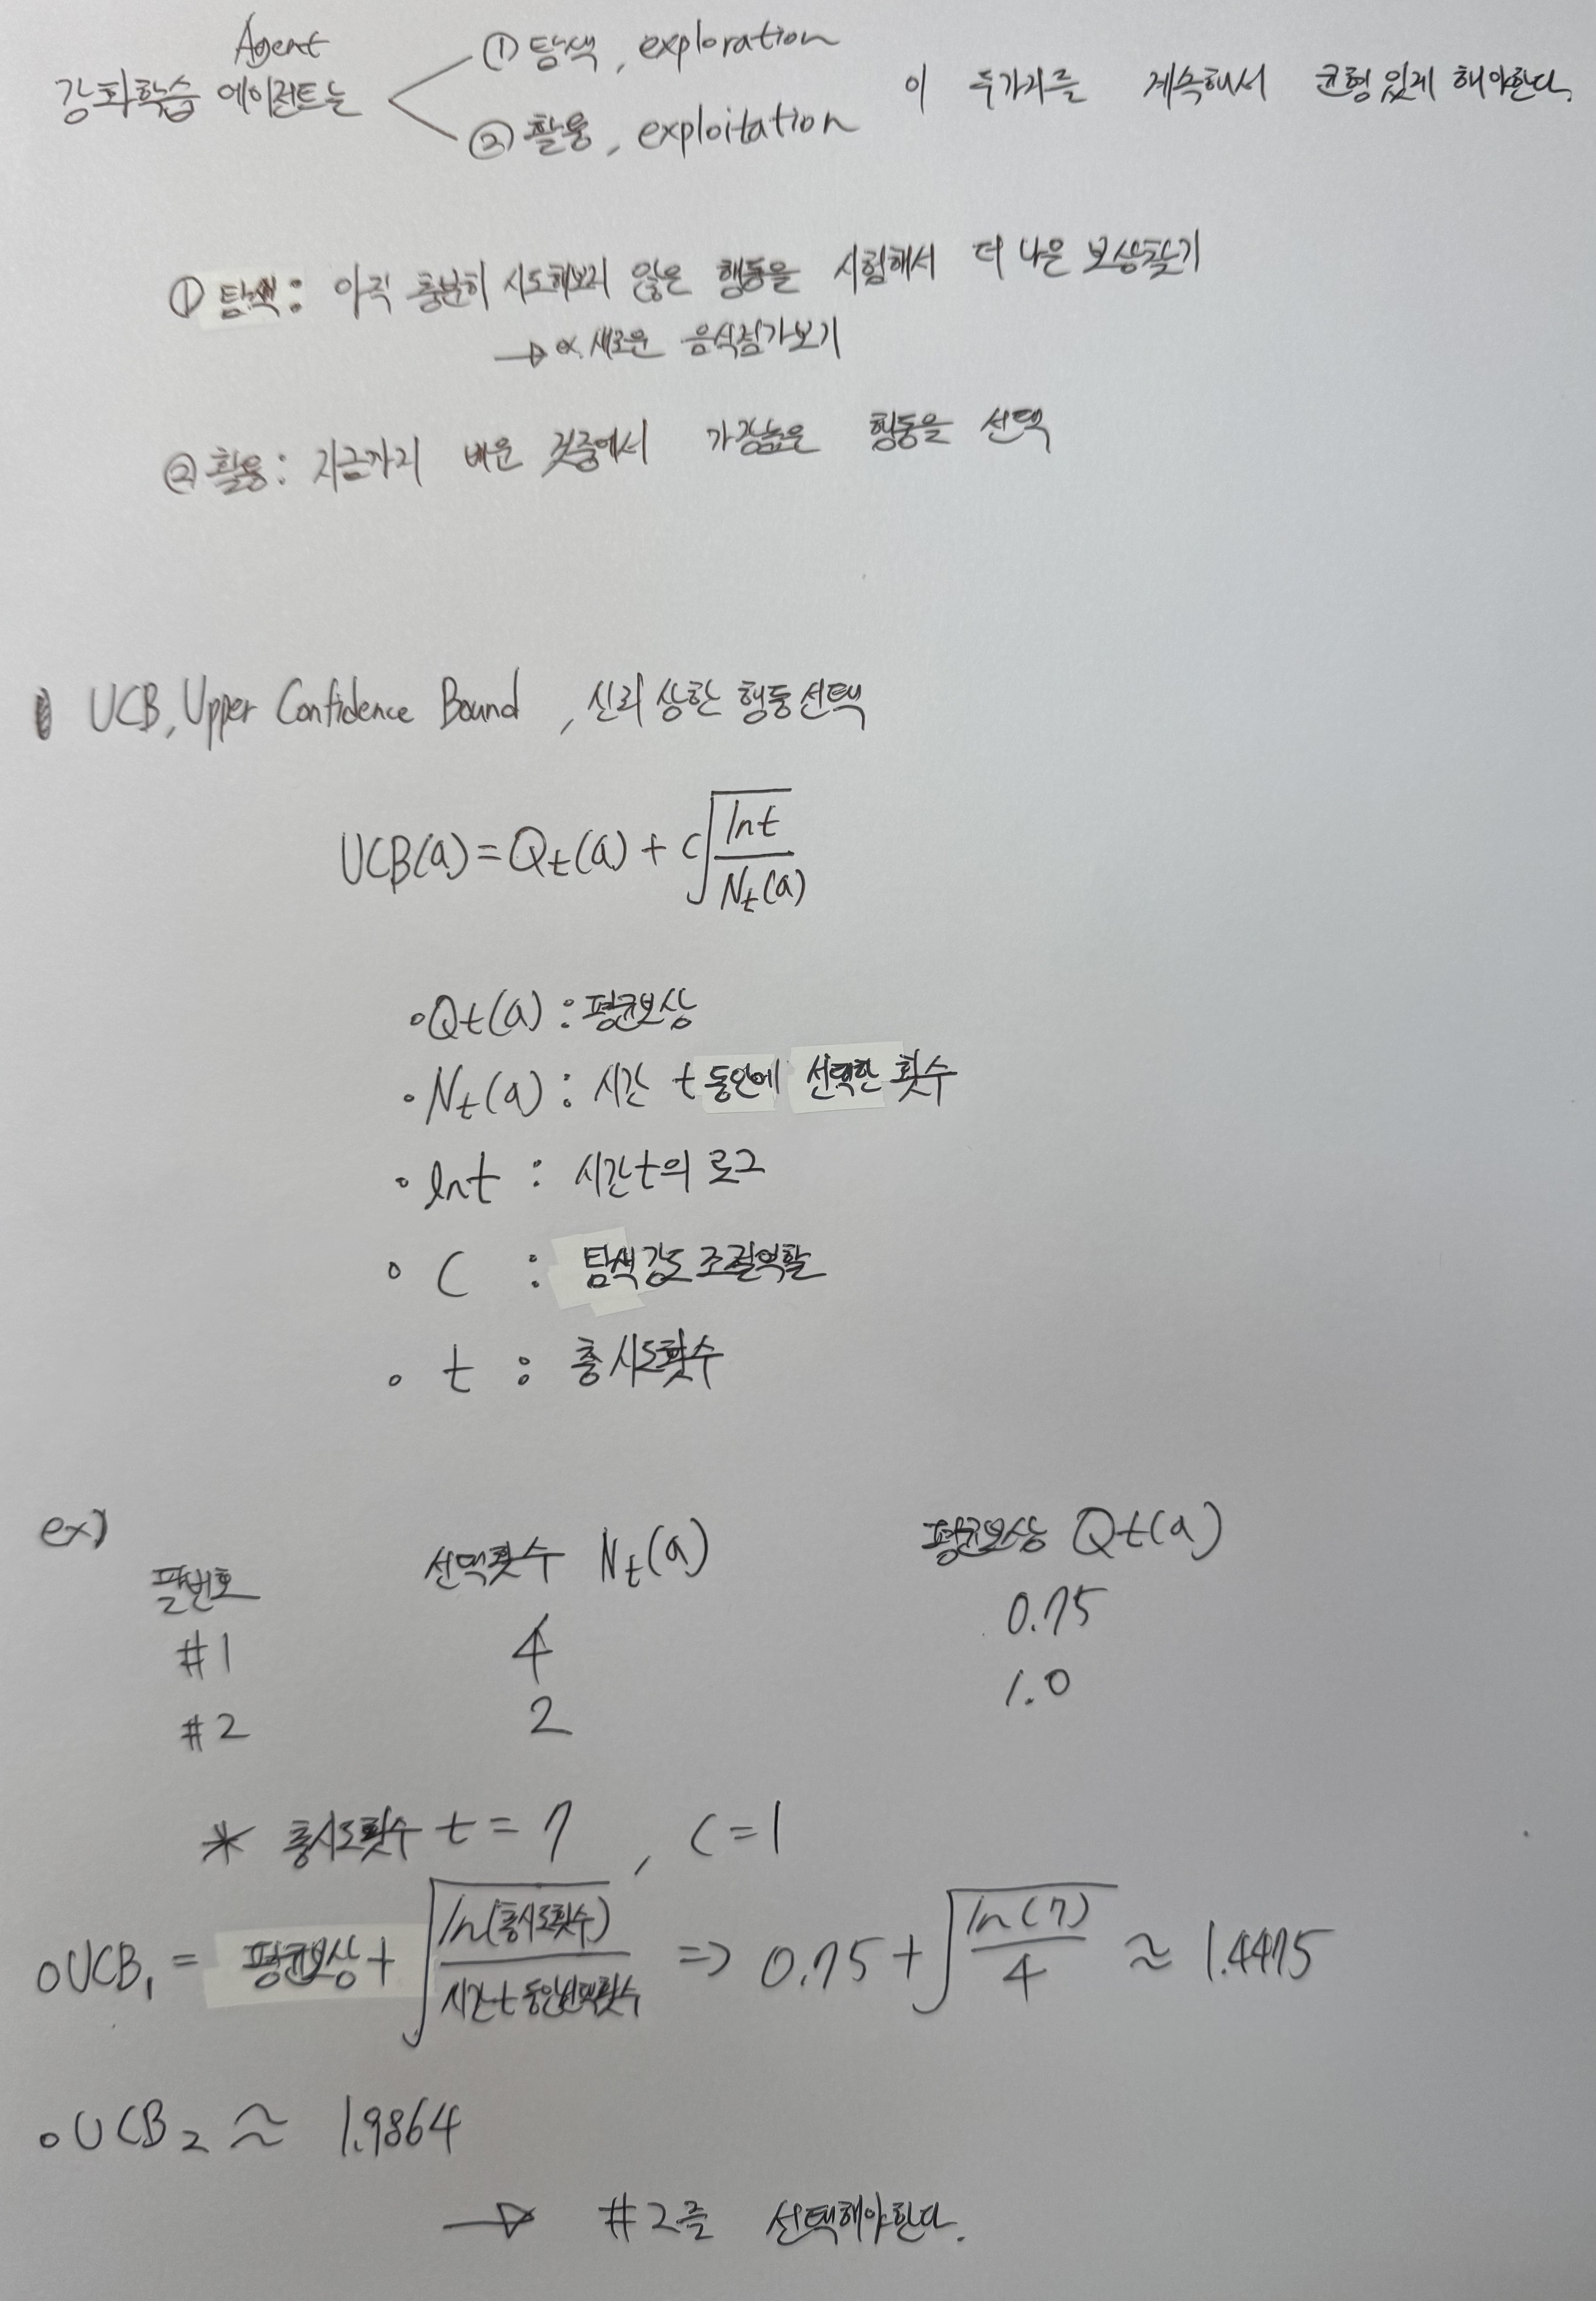 Agent
강화학습 에이전트는 ① 탐색, exploration
② 활용, exploitation
이 두가지를 계속해서 균형있게 해야한다.
① 탐색: 아직 충분히 시도해보지 않은 행동을 시험해서 더 나은 보상찾기
→ ex. 새로운 음식점가보기
② 활용: 지금까지 배운 것중에서 가장높은 행동을 선택
UCB, Upper Confidence Bound, 신뢰 상한 행동선택
UCB(a) = Qt(a) + c√(lnt / Nt(a))
• Qt(a) : 평균보상
• Nt(a) : 시간 t동안에 선택한 횟수
• lnt : 시간t의 로그
• C : 탐색강도 조절역할
• t : 총시도횟수
ex)
팔번호 선택횟수 Nt(a) 평균보상 Qt(a)
#1 4 0.75
#2 2 1.0
* 총시도횟수 t = 7, C = 1
○ UCB₁ = 평균보상 + √(ln(총시도횟수) / 시간t동안선택횟수) ⇒ 0.75 + √(ln(7) / 4) ≈ 1.4475
○ UCB₂ ≈ 1.9864
→ #2를 선택해야한다.